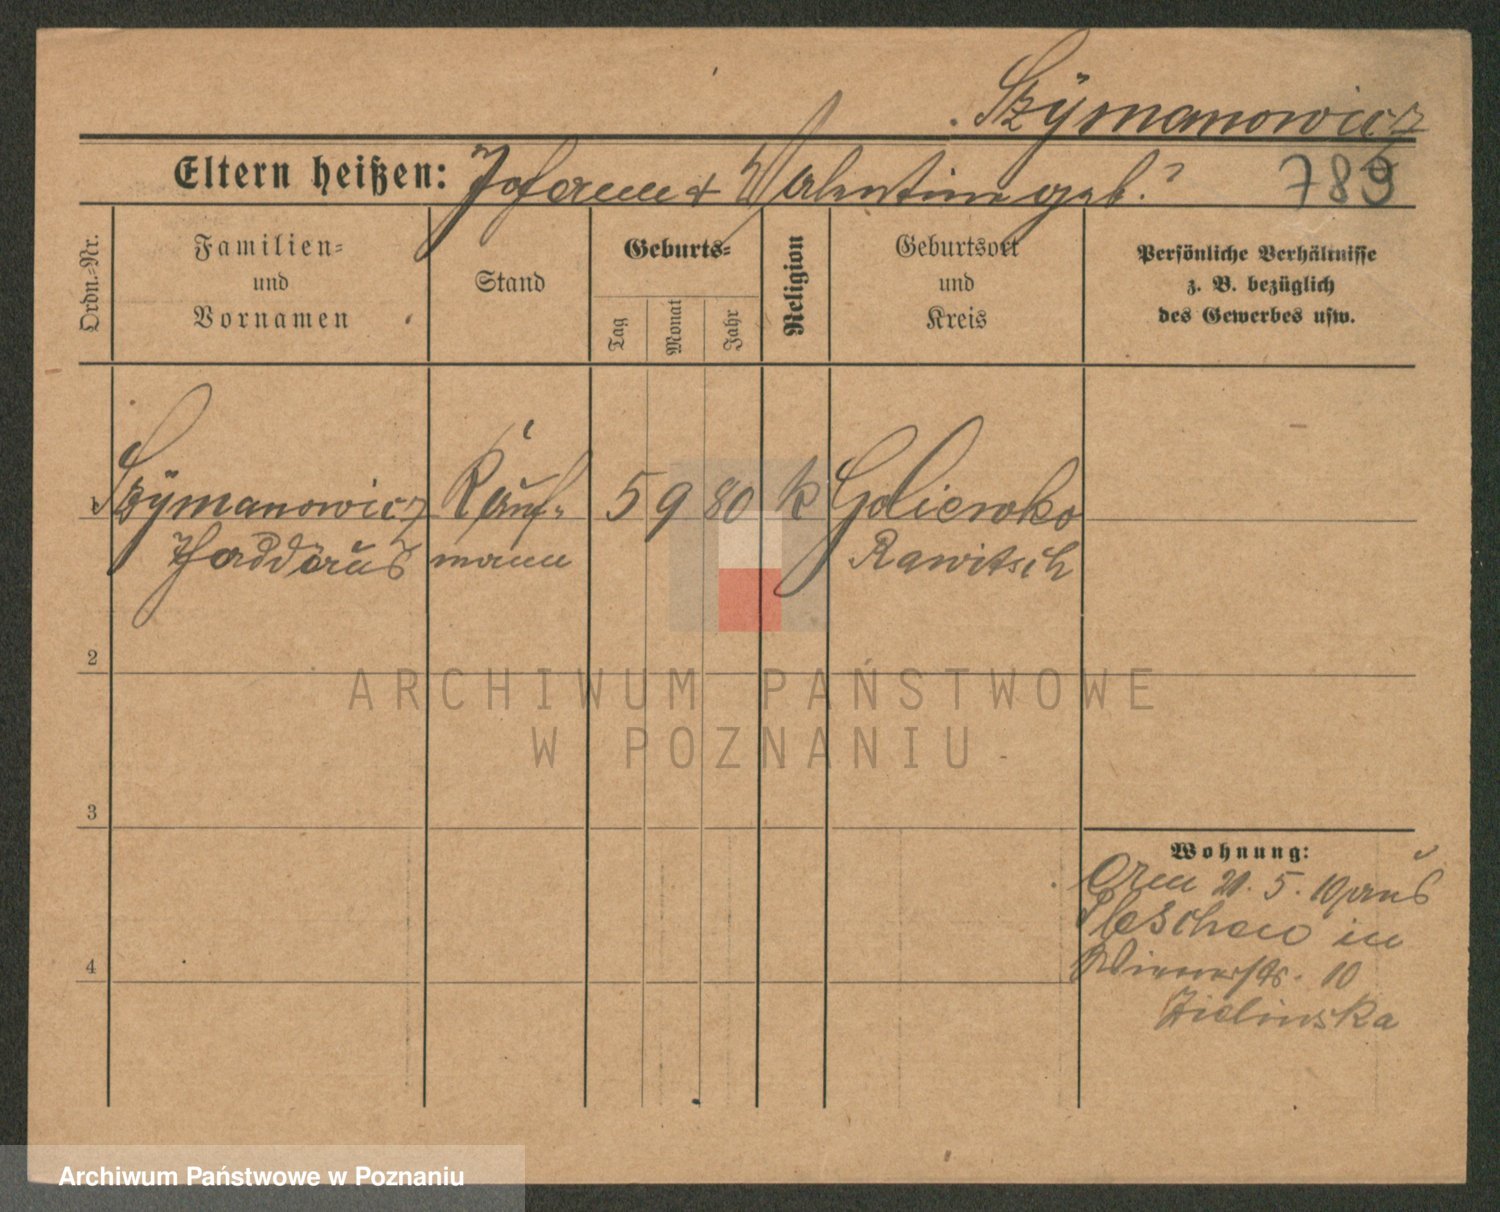 Szÿmanowicz
Eltern heißen: Johann + Valentine geb. ?
789
Ordn.-Nr.
Familien-
und
Vornamen
Stand
Geburts-
Tag
Monat
Jahr
Religion
Geburtsort
und
Kreis
Persönliche Verhältnisse
z. B. bezüglich
des Gewerbes usw.
Szÿmanowicz Kauf- 5 9 80 k Goliewko
Thaddäus mann Rawitsch
2
ARCHIWUM PAŃSTWOWE
W POZNANIU
3
Wohnung:
21. 5. 10 aus
Pleschen in
Wienerstr. 10
Zielinska
4
Archiwum Państwowe w Poznaniu